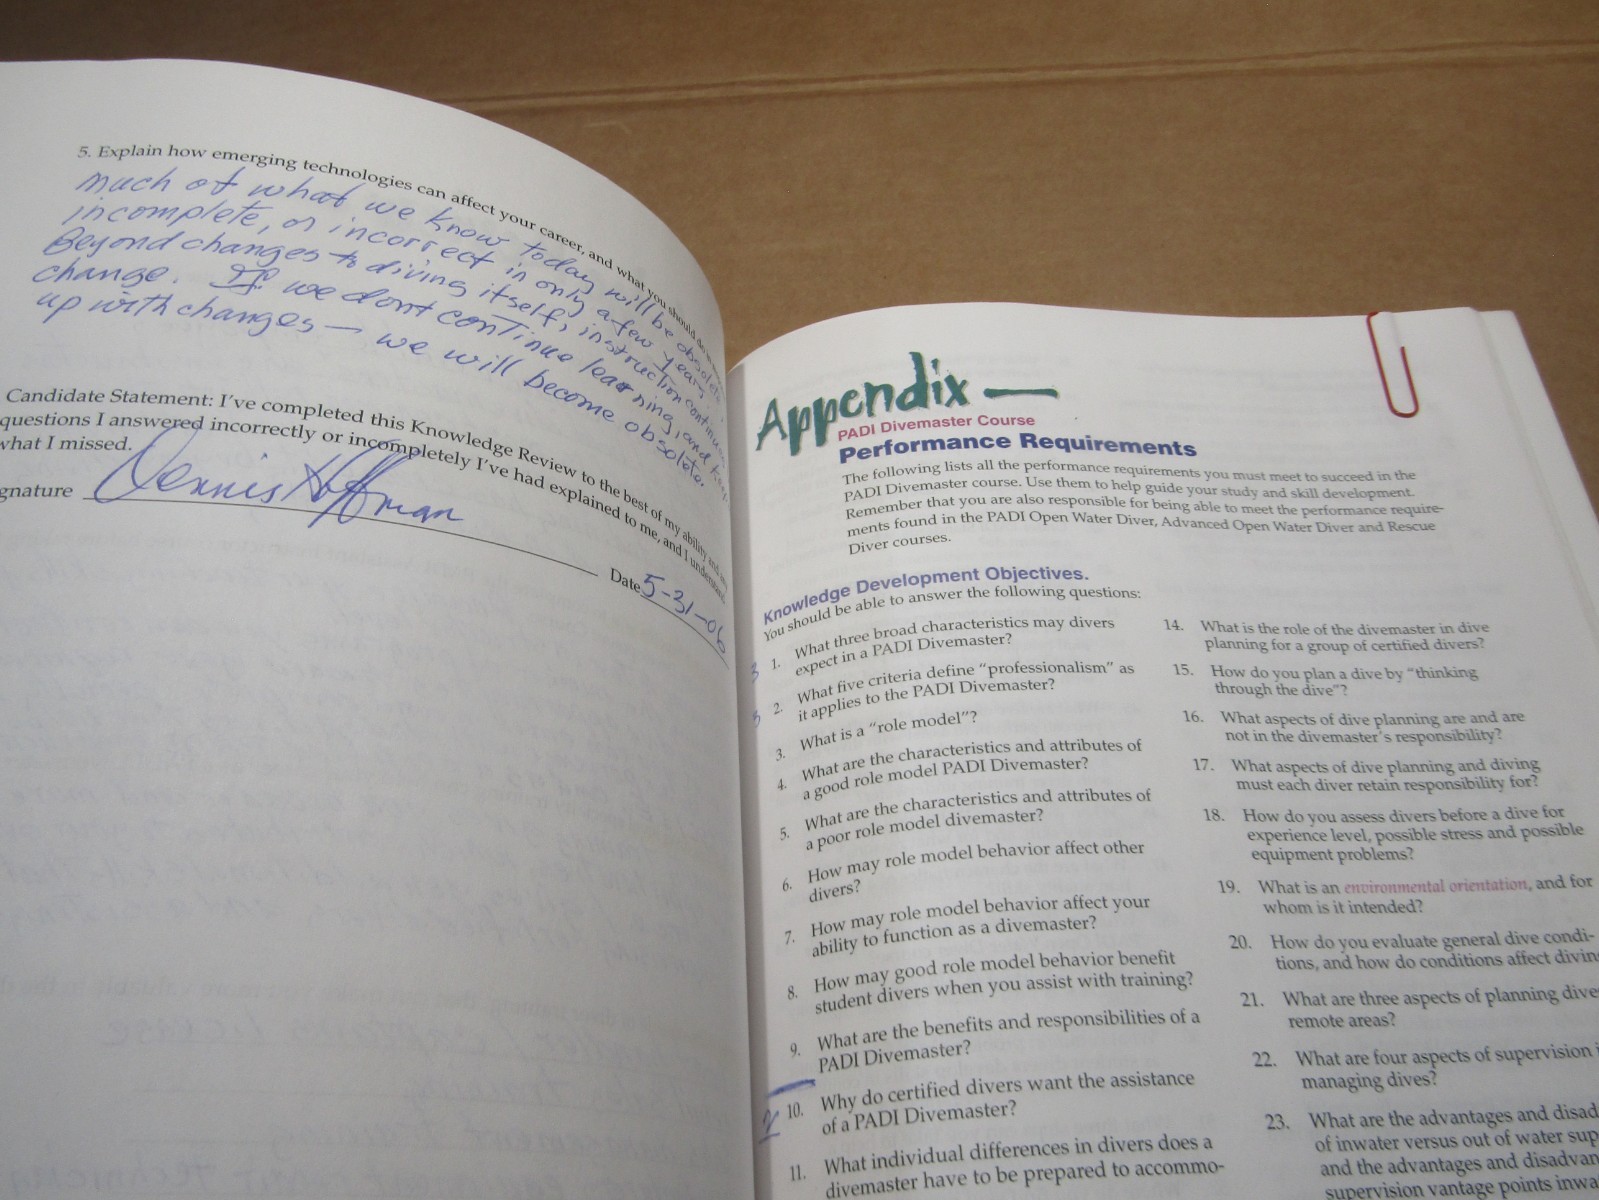 5. Explain how emerging technologies can affect your career, and what you should do
much of what we know today will be obsolete,
incomplete, or incorrect in only a few years.
Beyond changes to diving itself, instruction continues
change. If we dont continue learning, and keep
up with changes — we will become obsolete.
Candidate Statement: I've completed this Knowledge Review to the best of my ability and any
questions I answered incorrectly or incompletely I've had explained to me, and I understand
what I missed.
gnature Dennis Hoffman
Date 5-31-06
Appendix —
PADI Divemaster Course
Performance Requirements
The following lists all the performance requirements you must meet to succeed in the
PADI Divemaster course. Use them to help guide your study and skill development.
Remember that you are also responsible for being able to meet the performance require-
ments found in the PADI Open Water Diver, Advanced Open Water Diver and Rescue
Diver courses.
Knowledge Development Objectives.
You should be able to answer the following questions:
1. What three broad characteristics may divers
expect in a PADI Divemaster?
2. What five criteria define "professionalism" as
it applies to the PADI Divemaster?
3. What is a "role model"?
4. What are the characteristics and attributes of
a good role model PADI Divemaster?
5. What are the characteristics and attributes of
a poor role model divemaster?
6. How may role model behavior affect other
divers?
7. How may role model behavior affect your
ability to function as a divemaster?
8. How may good role model behavior benefit
student divers when you assist with training?
9. What are the benefits and responsibilities of a
PADI Divemaster?
10. Why do certified divers want the assistance
of a PADI Divemaster?
11. What individual differences in divers does a
divemaster have to be prepared to accommo-
14. What is the role of the divemaster in dive
planning for a group of certified divers?
15. How do you plan a dive by "thinking
through the dive"?
16. What aspects of dive planning are and are
not in the divemaster's responsibility?
17. What aspects of dive planning and diving
must each diver retain responsibility for?
18. How do you assess divers before a dive for
experience level, possible stress and possible
equipment problems?
19. What is an environmental orientation, and for
whom is it intended?
20. How do you evaluate general dive condi-
tions, and how do conditions affect divin
21. What are three aspects of planning dive
remote areas?
22. What are four aspects of supervision i
managing dives?
23. What are the advantages and disad
of inwater versus out of water sup
and the advantages and disadvan
supervision vantage points inwa